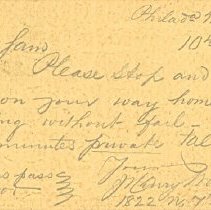 Philada
10
Sam
Please stop and
on your way hom
ng without fail -
minutes private tal
s pass Yours
Henry
1822 N. 7